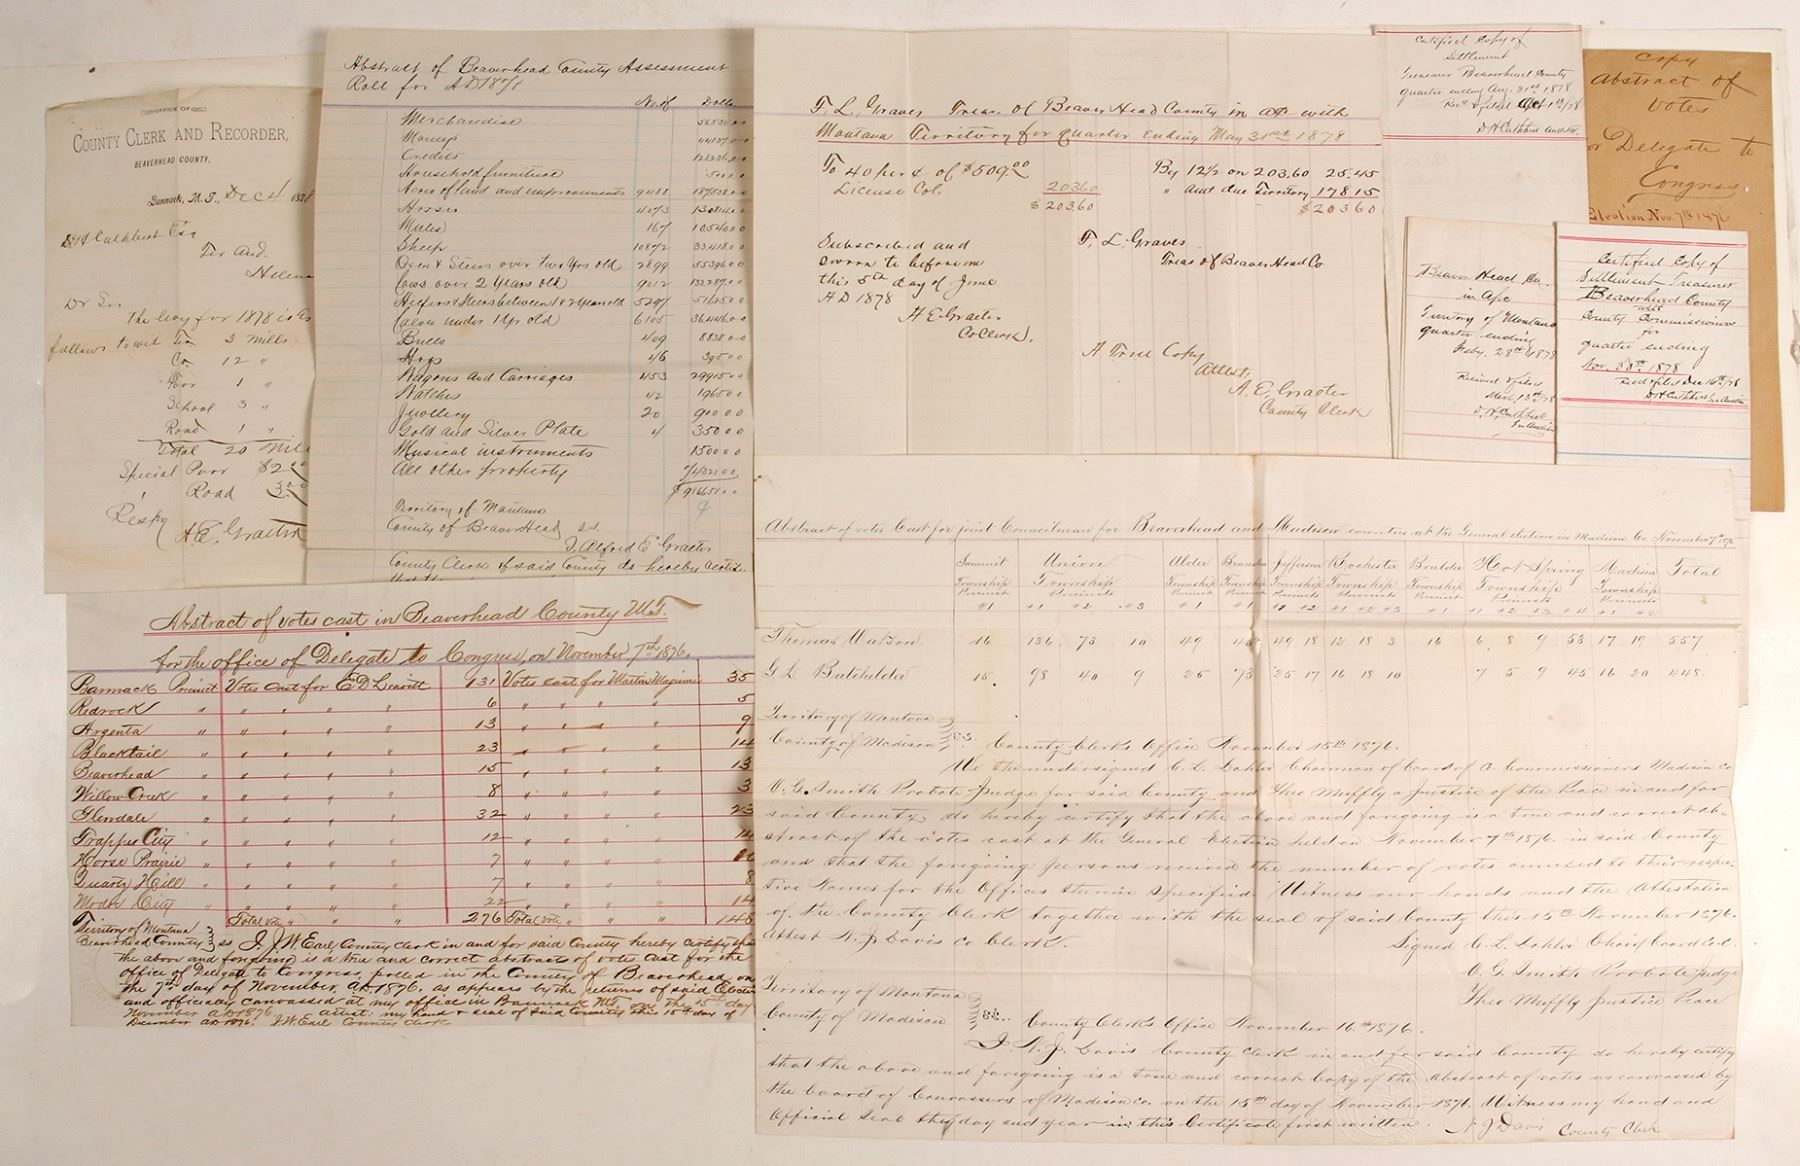 OFFICE OF
COUNTY CLERK AND RECORDER,
BEAVERHEAD COUNTY,
Bannack, M. T., Dec 4 1878
D H Cuthbert Esq
Ter Aud.
Helena
Dr Sir
The levy for 1878 is as
follows. to wit Ter 3 Mills.
Co. 12 "
Poor 1 "
School 3 "
Road 1 "
Total 20 Mill
Special Poor $2.00
Road 3.00
Respy
A. E. Graeter
Abstract of Beaverhead County Assessment
Roll for AD 1878
No. of Dolla
Merchandise
Moneys
Credits
Household furniture
Acres of land and improvements 9488
Horses 4073
Mules 167 10540 00
Sheep 10872 33418 00
Oxen & Steers over two Yrs old 2899 55396 00
Cows over 2 Years old 9012
Heifers & Steers between 1 & 2 Year old
Calves under 1 Yr old) 6105 36446 00
Bulls 409 8838 00
Hogs 46 395 00
Wagons and Carriages 453 29915 00
Watches 42 1965 00
Jewellery 20 900 00
Gold and Silver Plate 4 350 00
Musical instruments 1500 00
All other property
Territory of Montana
County of BeaverHead } s.s.
I. Alfred E. Graeter
County Clerk of said County do hereby certif.
F. L. Graves Treas. of Beaver Head County in a/c with
Montana Territory for quarter Ending May 31st 1878
To 40 per ct of $509.00
License Col. 203.60
$203.60
By 12½ on 203.60 25.45
" Amt due Territory 178.15
$203.60
Subscribed and
sworn to before me
this 5th day of June
AD 1878
A. E. Graeter
Co Clerk).
F. L. Graves
Treas of Beaver Head Co
A True Copy
Attest,
A. E. Graeter
County Clerk
Certified Copy of
Settlement
Treasurer Beaverhead County
quarter ending Aug. 31st 1878
Recd & filed Oct 1st/78
D. H. Cuthbert Auditor.
Copy
Abstract of
Votes
For Delegate to
Congress
Election Nov. 7th 1876
Beaver Head Co.
in a/c
Territory of Montana
quarter ending
Feby. 28th 1878
Received & filed
Mch. 13th 78
D. H. Cuthbert
Ter Auditor
Certified Copy of
Settlement Treasurer
Beaverhead County
with
County Commissioners
for
quarter ending
Nov. 30th 1878
Recd & filed Dec 16th/78
D H Cuthbert Ter Auditor
Abstract of votes Cast for joint Councilman for Beaverhead and Madison counties at the General election in Madison Co. November 7th 1876
Summit Union Alder Brandon Jefferson Rochester Boulder Hot Spring Madison Total
Township Township Township Township Township Township Township Township Township
Precinct Precincts Precinct Precinct Precincts Precincts Precinct Precincts Precincts
#1 #1 #2 #3 #1 #1 #1 #2 #1 #2 #3 #1 #1 #2 #3 #4 #1 #2
Thomas Watson 16 136. 73 10 49 49 18 12 18 3 16 6 8 9 53 17 19 557
G. L. Batchelder 15. 98 40 9 25 73 25 17 16 18 10 7 5 9 45 16 20 448.
Territory of Montana
County of Madison } ss. County Clerks Office November 15th 1876.
We the undersigned C. L. Dahler Chairman of board of Co. Commissioners Madison Co
O. G. Smith Probate Judge for said County and Theo Muffly a Justice of the Peace in and for
said County do hereby certify that the above and foregoing is a true and correct ab-
stract of the votes cast at the General Election held on November 7th 1876. in said County
and that the foregoing persons received the number of votes annexed to their respec-
tive Names for the Offices therein specified. Witness our hands and the Attestation
of the County Clerk together with the seal of said County this 15th November 1876.
Attest N. J. Davis Co Clerk.
Signed C. L. Dahler Chair board Co. C.
O. G. Smith Probate Judge
Theo Muffly Justice Peace
Territory of Montana
County of Madison } ss.. County Clerks Office November 16th 1876.
I. N. J. Davis County Clerk in and for said County do hereby certify
that the above and foregoing is a true and correct Copy of the Abstract of votes as canvassed by
the board of Canvassers of Madison Co. on the 15th day of November 1876. Witness my hand and
Official Seal the day and year in this Certificate first written. N J Davis County Clerk
Abstract of votes cast in Beaverhead County M.T.
for the office of Delegate to Congress, on November 7th 1876.
Bannack Precinct Votes cast for E D Leavitt 131 Votes cast for Martin Maginnis 35
Redrock " " " " " 6 " " " " 5
Argenta " " " " " 13 " " " " 9
Blacktail " " " " " 23 " " " " 14
Beaverhead " " " " " 15 " " " " 13
Willow Creek " " " " " 8 " " " " 3
Glendale " " " " " 32 " " " " 23
Trapper City " " " " " 12 " " " " 14
Horse Prairie " " " " " 7 " " " "
Quartz Hill " " " " " 7 " " " " 8
Modoc City " " " " " 22 " " " " 14
Total vote " " " 276 Total vote " " "
Territory of Montana
Beaverhead County } ss I. J. W. Earl County clerk in and for said county hereby certify tha
the above and foregoing is a true and correct abstracts of votes cast for the
office of Delegate to Congress, polled in the County of Beaverhead, on
the 7th day of November, AD. 1876. as appears by the returns of said Electi
and officially canvassed at my office in Bannack M.T. on the 15th day
November AD 1876. attest: my hand & seal of said County this 15th day of
December AD. 1876. J. W. Earl County clerk